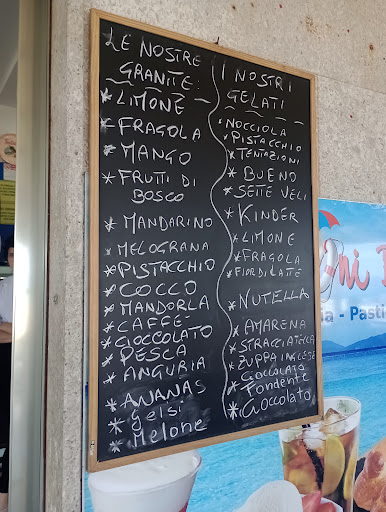 LE NOSTRE
GRANITE:
* LIMONE
* FRAGOLA
* MANGO
* FRUTTI DI
BOSCO
* MANDARINO
* MELOGRANA
* PISTACCHIO
* COCCO
* MANDORLA
* CAFFÈ
* CIOCCOLATO
* PESCA
* ANGURIA
* ANANAS
* Gelsi
* Melone
I NOSTRI
GELATI
* NOCCIOLA
* PISTACCHIO
* TENTAZIONI
* BUENO
* SETTE VELI
* KINDER
* LIMONE
* FRAGOLA
* FIORDILATTE
* NUTELLA
* AMARENA
* STRACCIATELLA
* ZUPPA INGLESE
* Cioccolato
Fondente
* Cioccolato
ni B
ia - Pasti